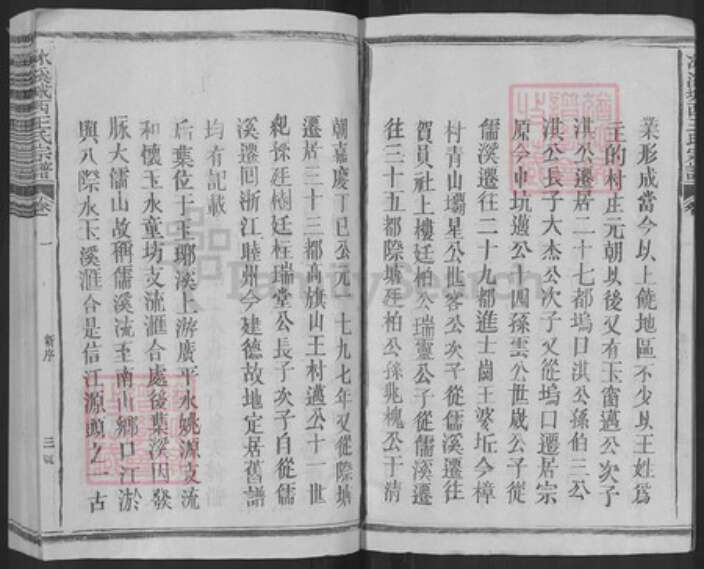 業形成當今以上饒地區不少以王姓爲
王的村庄元朝以後又有玉窗邁公次子
淇公遷居二十七都塢口淇公孫伯三公
淇公長子大杰公次子又從塢口遷居宗
原今中坑邁公十四孫雲公世崴公子從
儒溪遷往二十九都進士崗王婆坵今樟
村青山壩星公世客公次子從儒溪遷往
賀員社上樓廷柏公瑞靈公子從儒溪遷
往三十五都際墩廷柏公孫兆槐公于清
朝嘉慶丁巳公元一七九七年又從際墩
遷居三十三都高旗山王村邁公十一世
祀孫廷樹廷柱瑞堂公長子次子自從儒
溪遷回浙江睦州今建德故地定居舊譜
均有記載
后葉位于玉瑯溪上游廣平水姚源支流
和懷玉水童坊支流滙合處後葉溪因發
脉大儒山故稱儒溪流至南山鄉口江淤
與八際水玉溪滙合是信江源頭之一古
冰溪城西王氏宗譜
卷一
新序
三